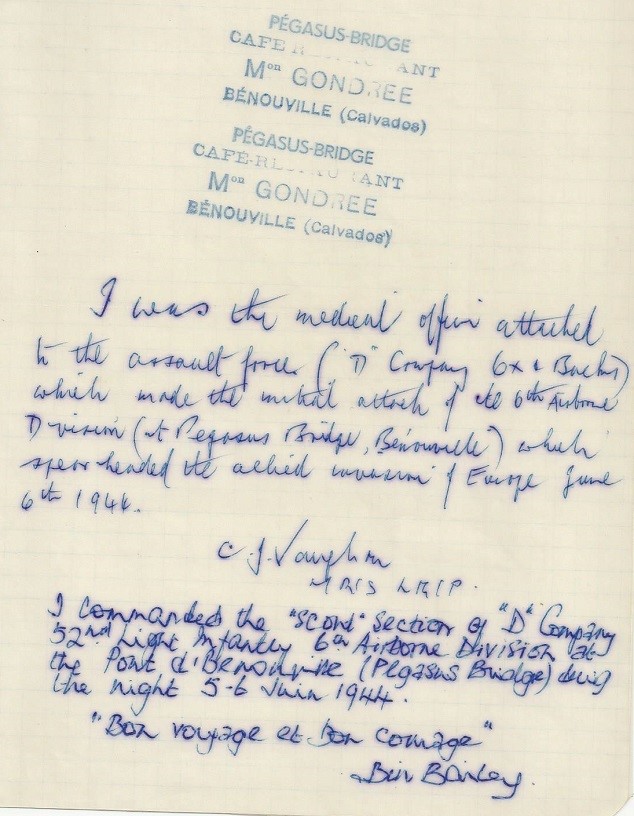 PÉGASUS-BRIDGE
CAFE R ANT
Mon GONDREE
BÉNOUVILLE (Calvados)
PÉGASUS-BRIDGE
CAFÉ-RESTAURANT
Mon GONDREE
BÉNOUVILLE (Calvados)
I was the medical officer attached
to the assault force ("D" Company Ox & Bucks)
which made the initial attack of the 6th Airborne
Division (at Pegasus Bridge, Bénouville) which
spearheaded the allied invasion of Europe June
6th 1944.
C J. Vaughan
MRCS LRCP.
I commanded the "scout" section of "D" Company
52nd Light Infantry 6th Airborne Division at
the Pont d'Benouville (Pegasus Bridge) during
the night 5-6 Juin 1944.
"Bon voyage et Bon courage"
Bill Bailey.